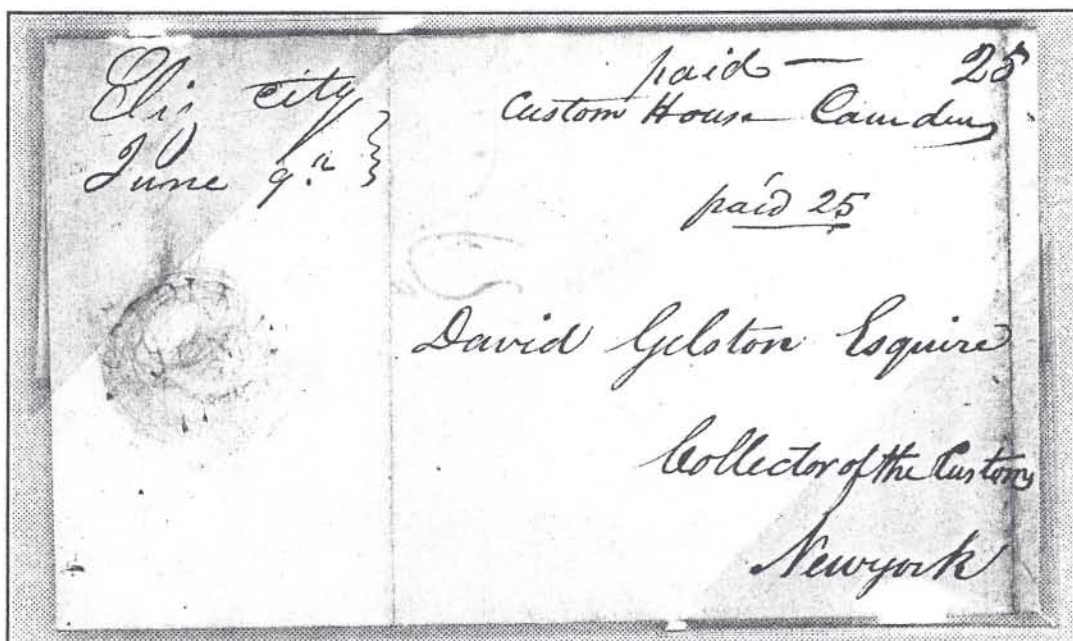 Eliz city
June 9.th
paid — 25
Custom House Camden
paid 25
David Gelston Esquire
Collector of the Customs
Newyork